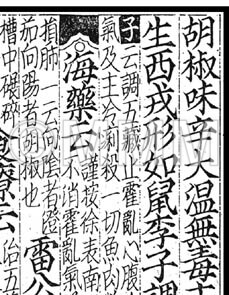 胡椒味辛大温無毒主
生西戎形如鼠李子調
子云調五藏止霍亂心腹
氣及主冷痢殺一切魚肉
海藥云謹按徐表南
不消霍亂氣
損肺一云向陰者澄
茄向陽者胡椒也雷公
槽中碾碎食療云治五